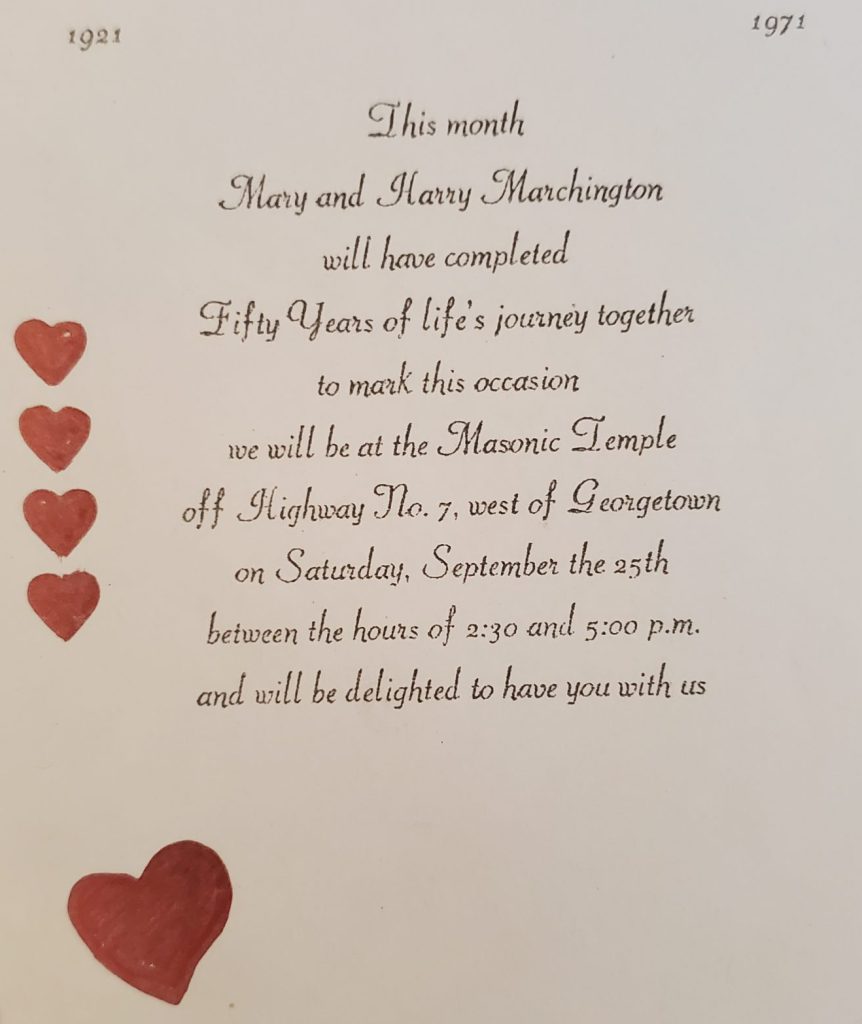 1921 1971
This month
Mary and Harry Marchington
will have completed
Fifty Years of life's journey together
to mark this occasion
we will be at the Masonic Temple
off Highway No. 7, west of Georgetown
on Saturday, September the 25th
between the hours of 2:30 and 5:00 p.m.
and will be delighted to have you with us